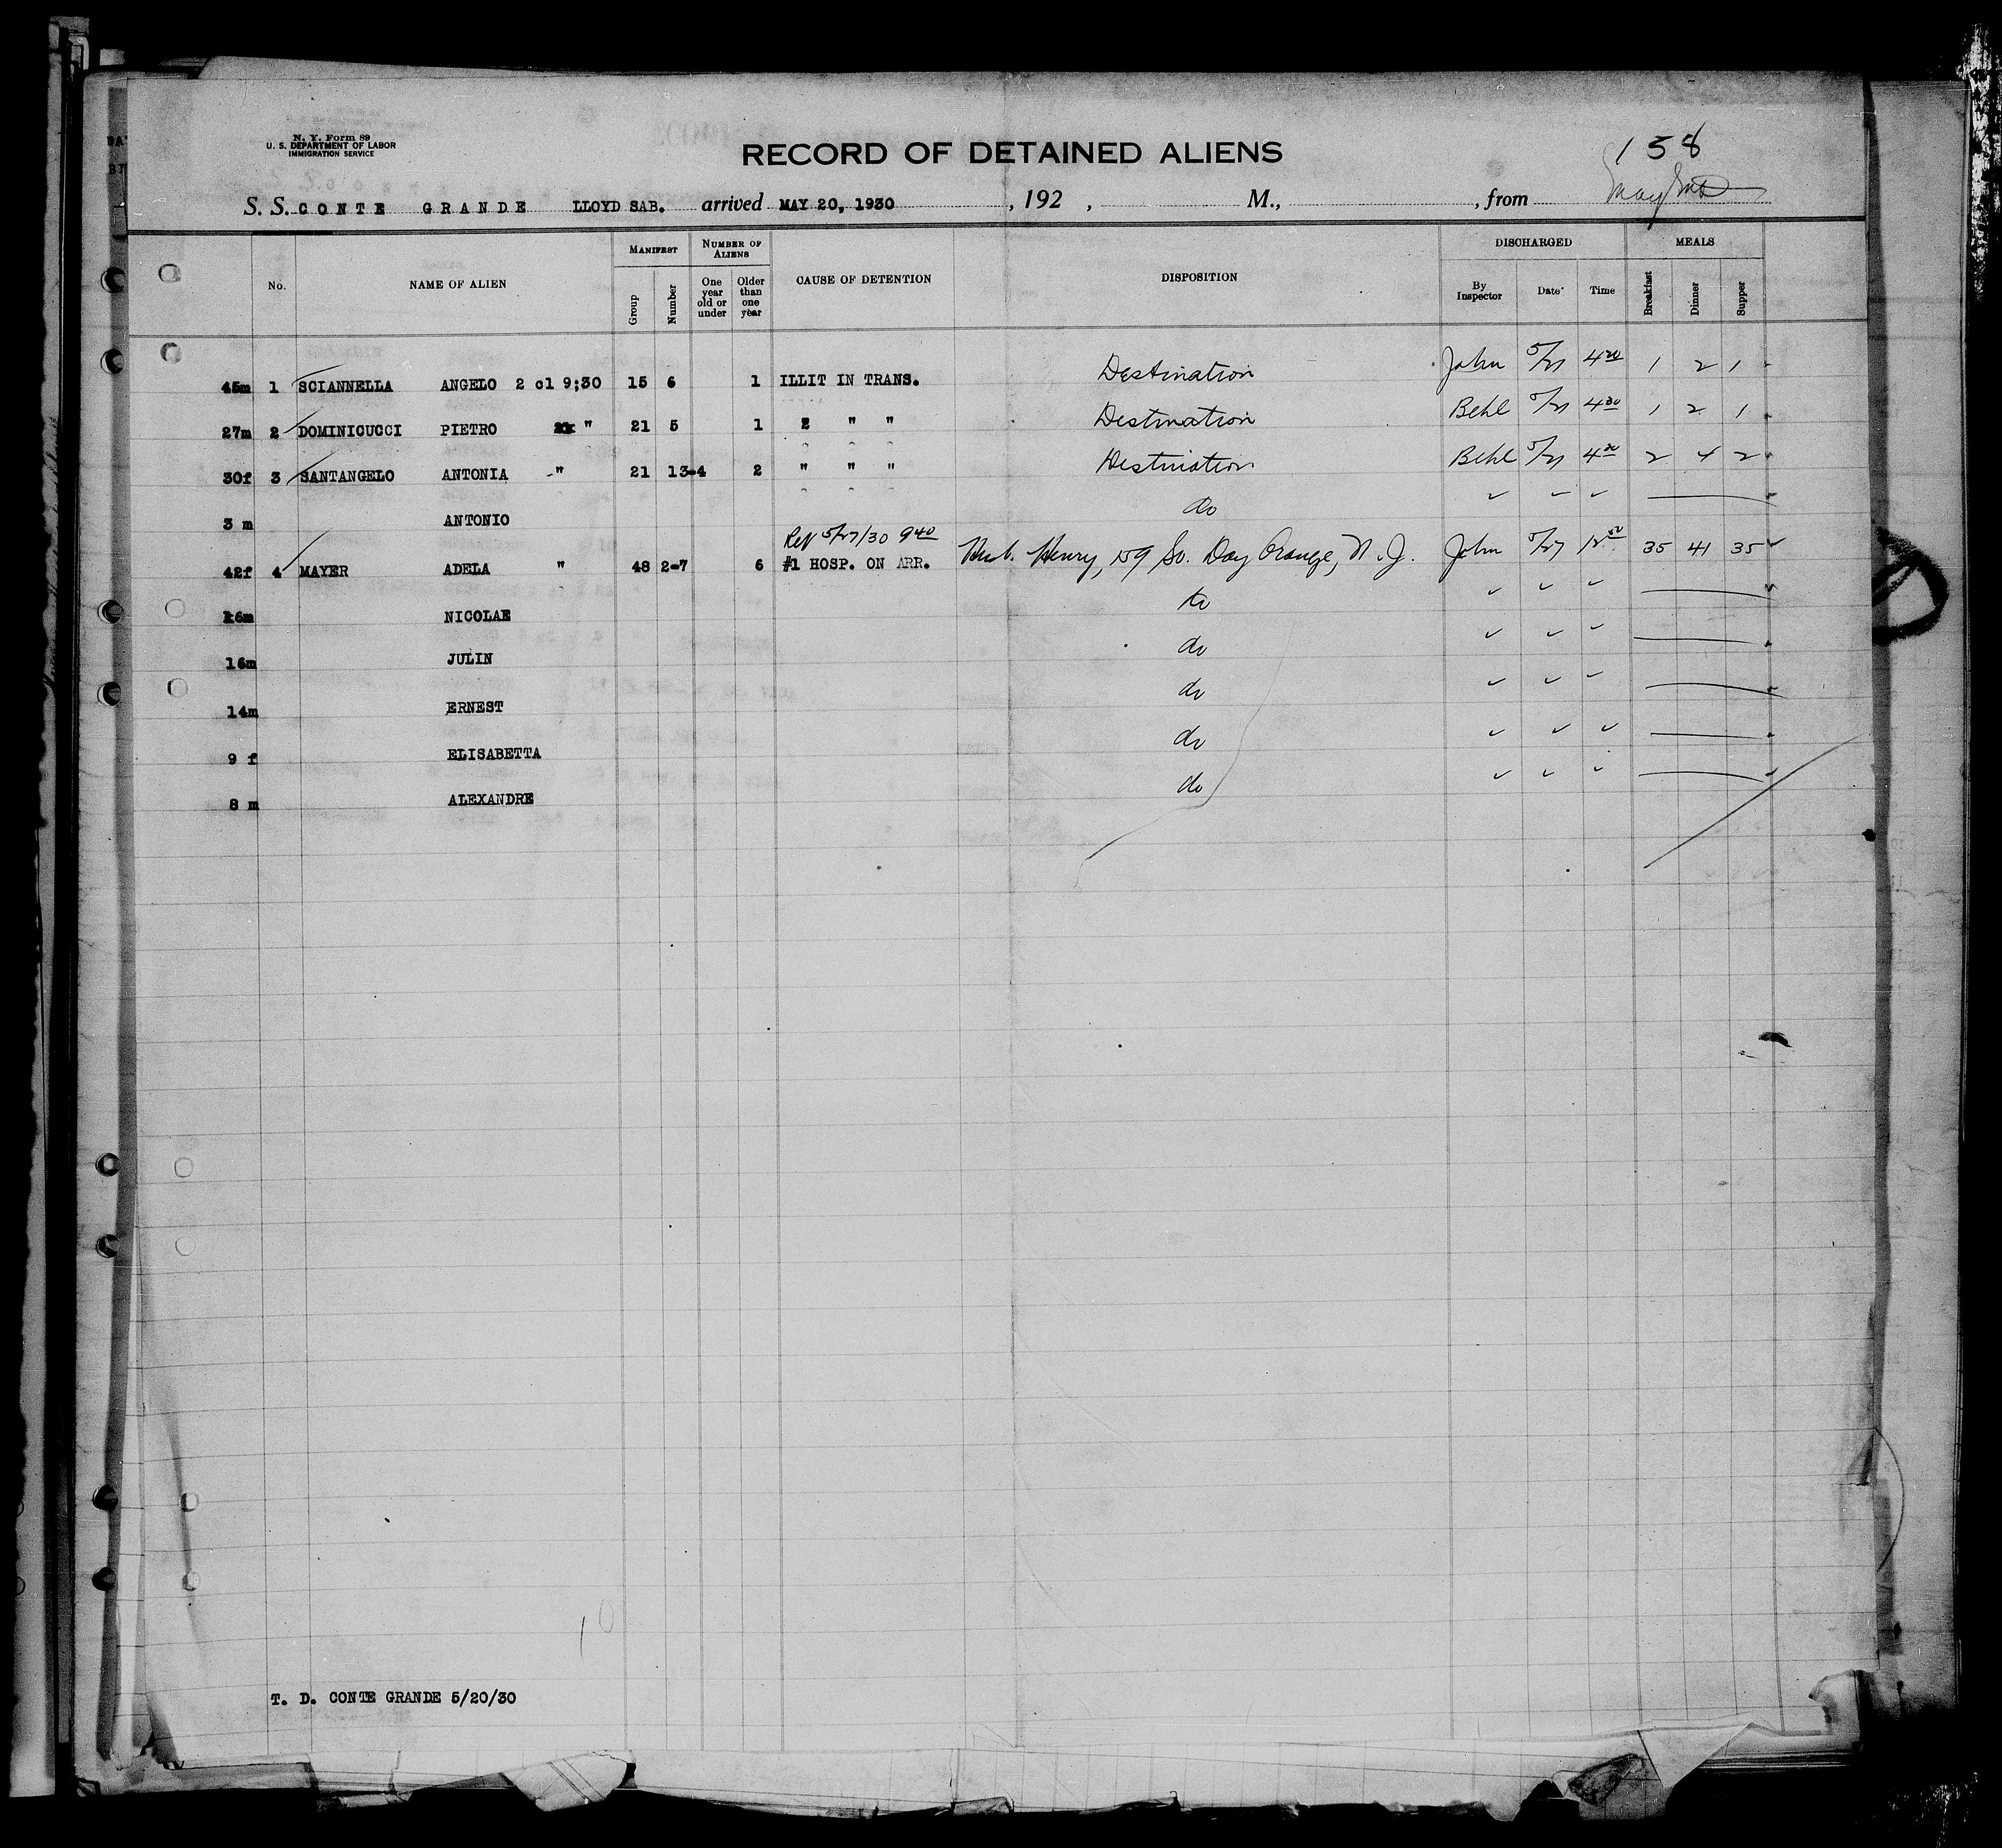 N. Y. Form 89
U. S. DEPARTMENT OF LABOR
IMMIGRATION SERVICE
RECORD OF DETAINED ALIENS
158
S. S. CONTE GRANDE LLOYD SAB. arrived MAY 20, 1930 , 192 , M., , from
No. NAME OF ALIEN MANIFEST Group Number NUMBER OF ALIENS One year old or under Older than one year CAUSE OF DETENTION DISPOSITION DISCHARGED By Inspector Date Time MEALS Breakfast Dinner Supper
45m 1 SCIANNELLA ANGELO 2 cl 9;30 15 6 1 ILLIT IN TRANS. Destination John 5/21 4 20 1 2 1
27m 2 DOMINICUCCI PIETRO " 21 5 1 " " Destination Behl 5/21 4 30 1 2 1
30f 3 SANTANGELO ANTONIA " 21 13-4 2 " " " Destination Behl 5/21 4 20 2 4 2
3 m ANTONIO do
Rel 5/27/30 9 40
42f 4 MAYER ADELA " 48 2-7 6 #1 HOSP. ON ARR. Husb. Henry, 159 So. Day Orange, N. J. John 5/27 35 41 35
16m NICOLAE do
16m JULIN do
14m ERNEST do
9 f ELISABETTA do
8 m ALEXANDRE do
10
T. D. CONTE GRANDE 5/20/30